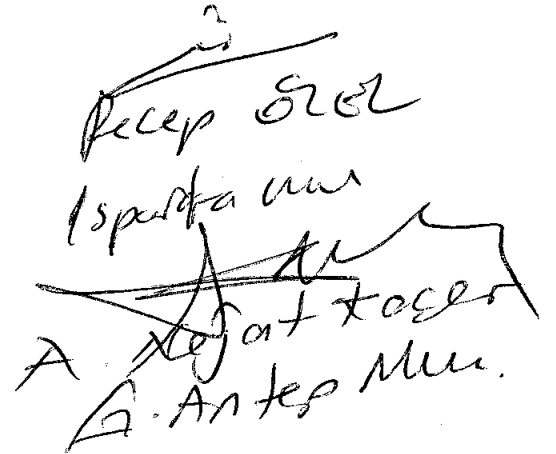 Recep Özel
Isparta Mv.
A. Nejat Koçer
G. Antep Mv.